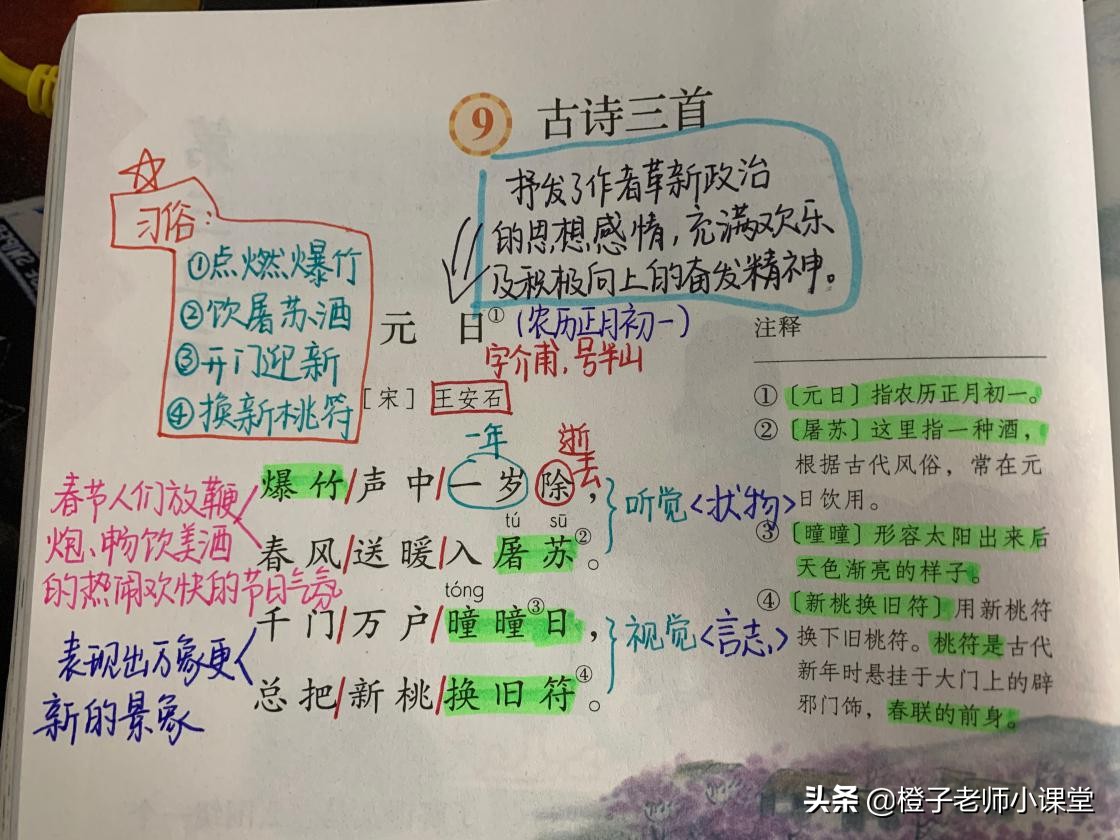 9 古诗三首
抒发了作者革新政治
的思想感情，充满欢乐
及积极向上的奋发精神。
习俗：
①点燃爆竹
②饮屠苏酒
③开门迎新
④换新桃符
元 日① (农历正月初一)
字介甫，号半山
[宋] 王安石
一年 逝去
爆竹/声中/一岁除，
tú sū
春风/送暖/入屠苏②。
tóng
千门/万户/曈曈③日，
总把/新桃/换旧符④。
春节人们放鞭
炮、畅饮美酒
的热闹欢快的节日气氛
表现出万象更
新的景象
听觉<状物>
视觉<言志>
注释
①〔元日〕指农历正月初一。
②〔屠苏〕这里指一种酒，
根据古代风俗，常在元
日饮用。
③〔曈曈〕形容太阳出来后
天色渐亮的样子。
④〔新桃换旧符〕用新桃符
换下旧桃符。桃符是古代
新年时悬挂于大门上的辟
邪门饰，春联的前身。
头条 @橙子老师小课堂